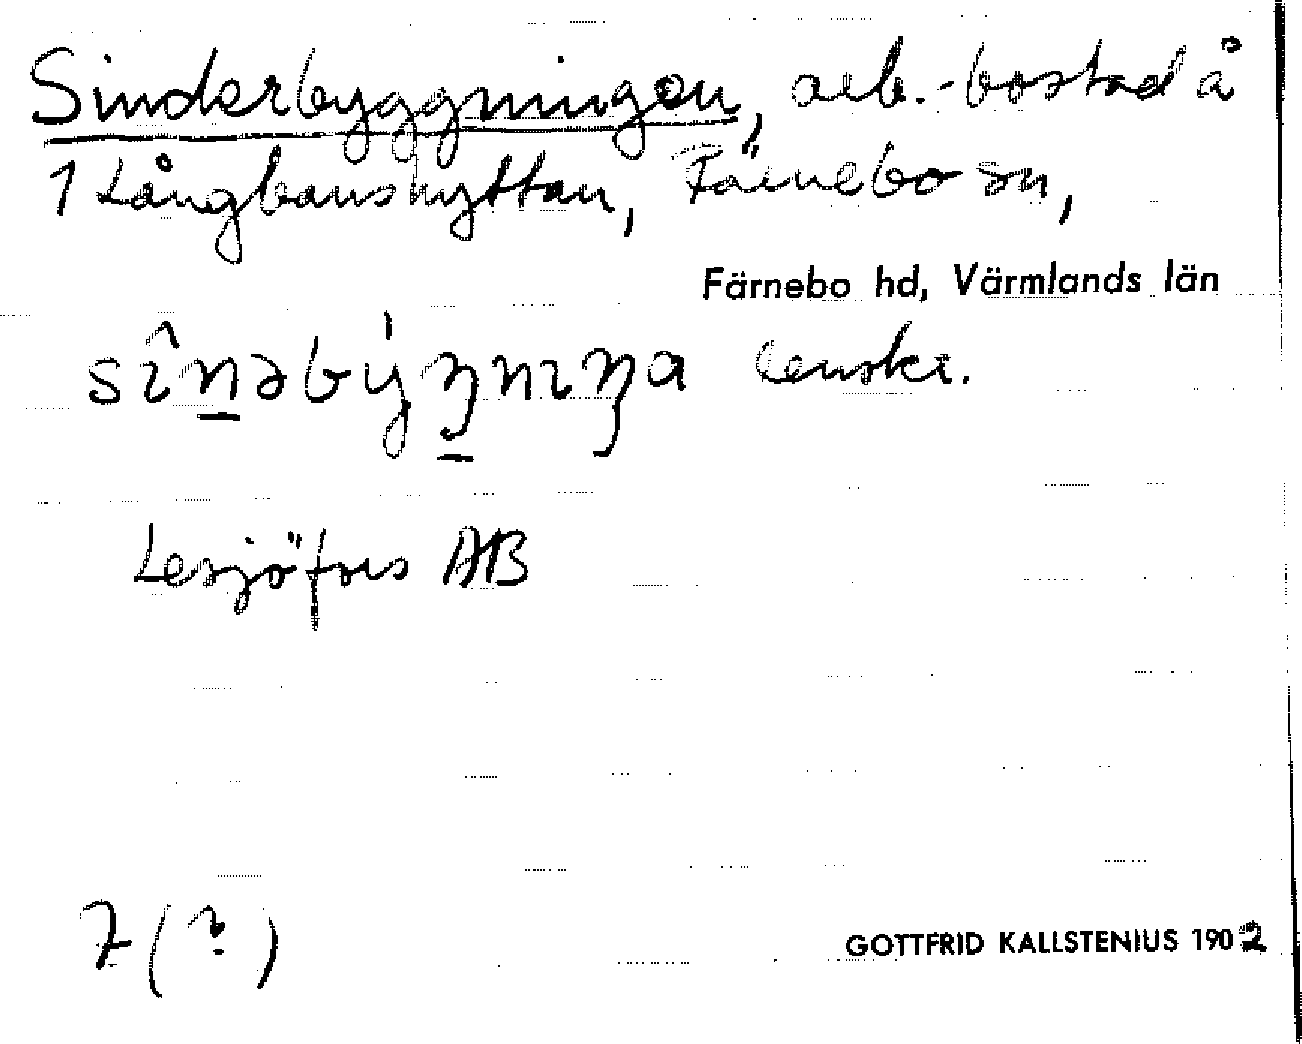 Sinderbyggningen, arb.-bostad å
1 Långbanshyttan, Färnebo sn,
Färnebo hd, Värmlands län
Lesjöfors AB
7 (?)
GOTTFRID KALLSTENIUS 1902